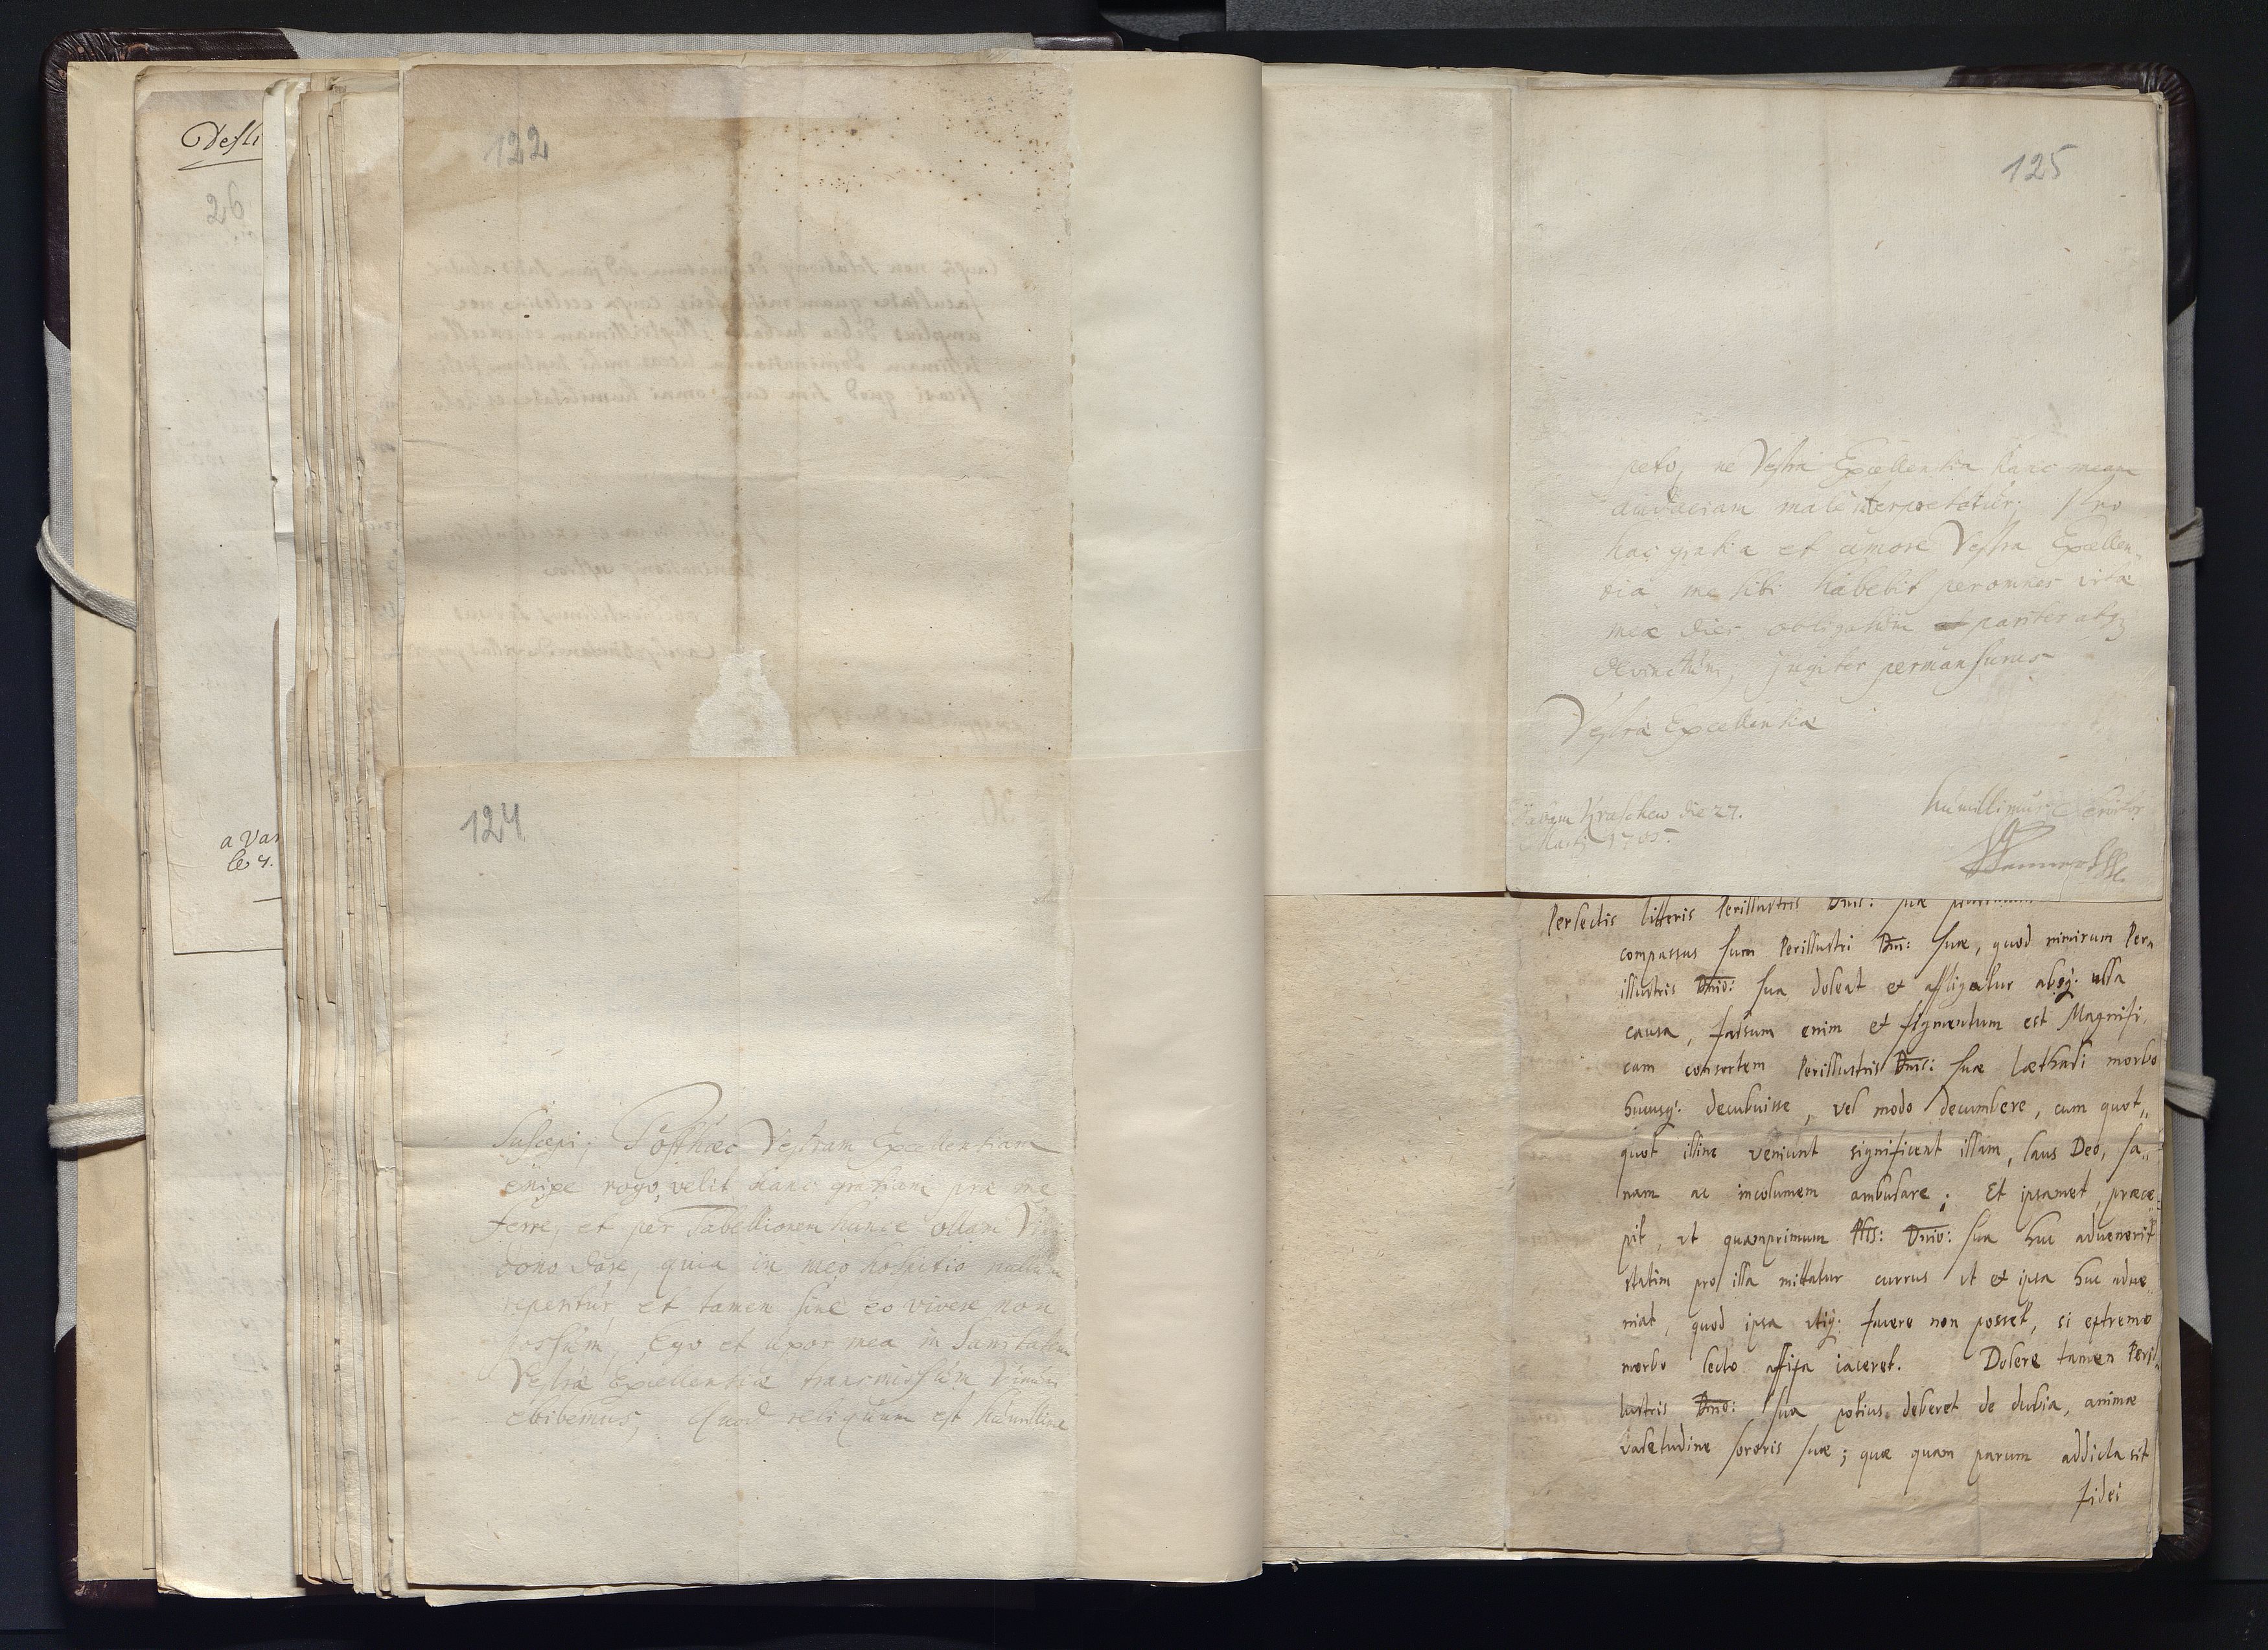 Desli
26
a Var
le 4.
122
124
Suscepi; Posthæc Vestram Excellentiam
enixe rogo, velit hanc gratiam præ me
ferre, et per Tabellionem hunce ollam Vini
dono dare, quia in meo hospitio nullum
reperitur, et tamen sine eo vivere non
possum, Ego et uxor mea in Sanitatem
Vestræ Excellentiæ transmissum Vinum
ebibemus, Quod reliquum est humillime
125
peto, ne Vestra Excellentia hanc meam
audaciam male interpretetur; Pro
hac gratia et amore Vestra Excellen„
tia me sibi habebit per omnes vitæ
meæ dies obligatum pariter atq₃
devinctum, jugiter permansurus
Vestræ Excellentiæ
Kraschew die 27.
Martij 1705.
humillimus Servitor
Perlectis litteris Perillustris Dnis: suæ
compassus sum Perillustri Dni: suæ, quod nimirum Per„
illustris Dnio: sua doleat et affligatur absq: ulla
causa, falsum enim et figmentum est Magnifi„
cam consortem Perillustris Dnis: suæ læthali morbo
hucusq: decubuisse, vel modo decumbere, cum quot„
quot illinc veniunt significent illam, laus Deo, sa„
nam ac incolumem ambulare; Et ipsamet præce„
pit, ut quamprimum Dnio: sua huc advenerit
statim pro illa mittatur currus ut et ipsa huc adve„
niat, quod ipsa utiq: facere non posset, si extremo
morbo lecto affixa iaceret. Dolere tamen Peril„
lustris Dnio: sua potius deberet de dubia, animæ
valetudine sororis suæ; quæ quam parum addicta sit
fidei